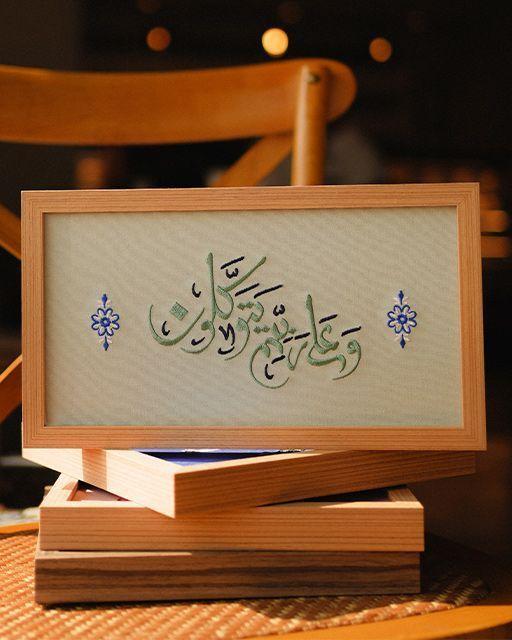 وَعَلَىٰ رَبِّهِمْ يَتَوَكَّلُونَ